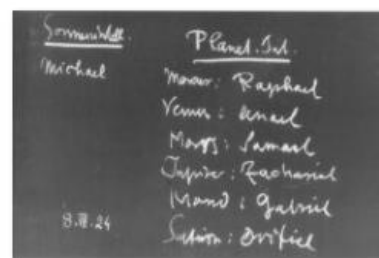 Sonnenintell.
Michael
Planet. Int.
Merkur: Raphael
Venus: Anael
Mars: Samael
Jupiter: Zachariel
Mond: Gabriel
Saturn: Orifiel
8.III.24